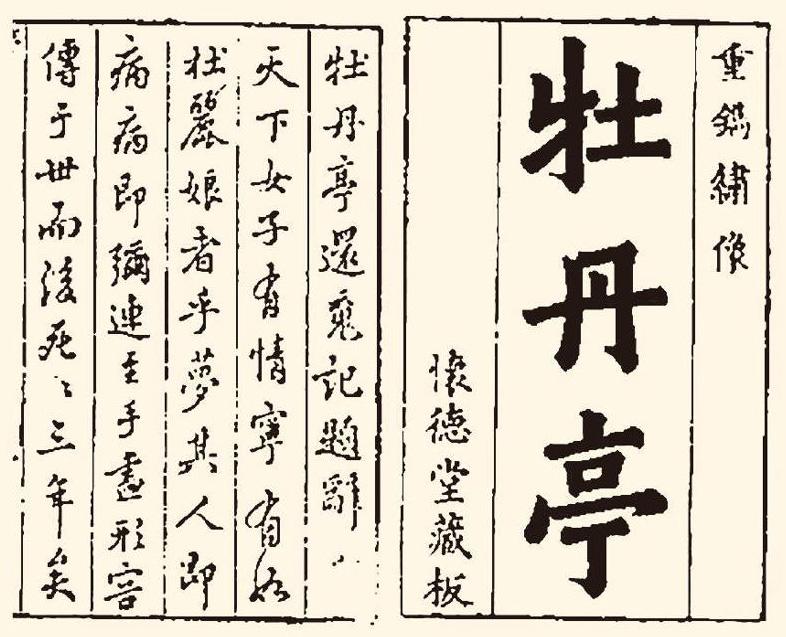 重鐫繡像
牡丹亭
懷德堂藏板
牡丹亭還魂記題辭
天下女子有情寧有如
杜麗娘者乎夢其人即
病病即彌連至手畫形容
傳于世而後死死三年矣